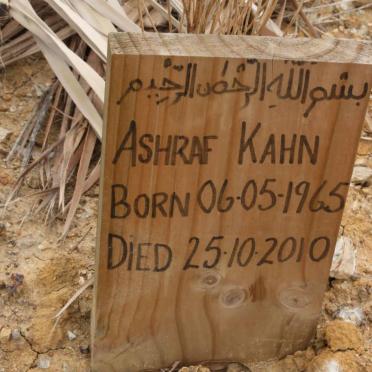 بسم الله الرحمن الرحيم
ASHRAF KAHN
BORN 06-05-1965
DIED 25.10.2010